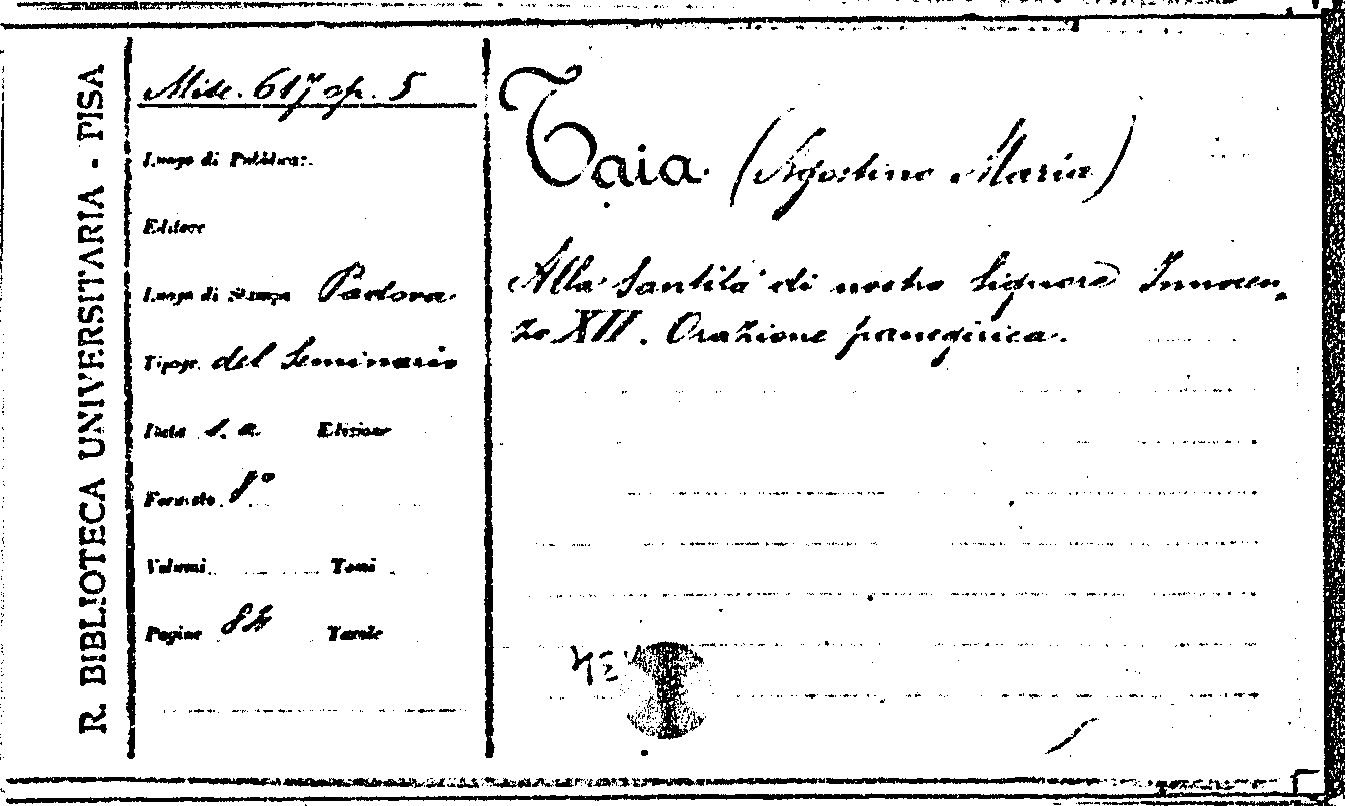 R. BIBLIOTECA UNIVERSITARIA - PISA
Misc. 617 op. 5
Luogo di Pubblicaz.
Editore
Luogo di Stampa Padova
Tipogr. del Seminario
Data s. a. Edizione
Formato 8°
Volumi Tomi
Pagine Tavole
Taia (Agostino Maria)
Alla Santità di nostro Signore Innocen-
zo XII. Orazione panegirica.